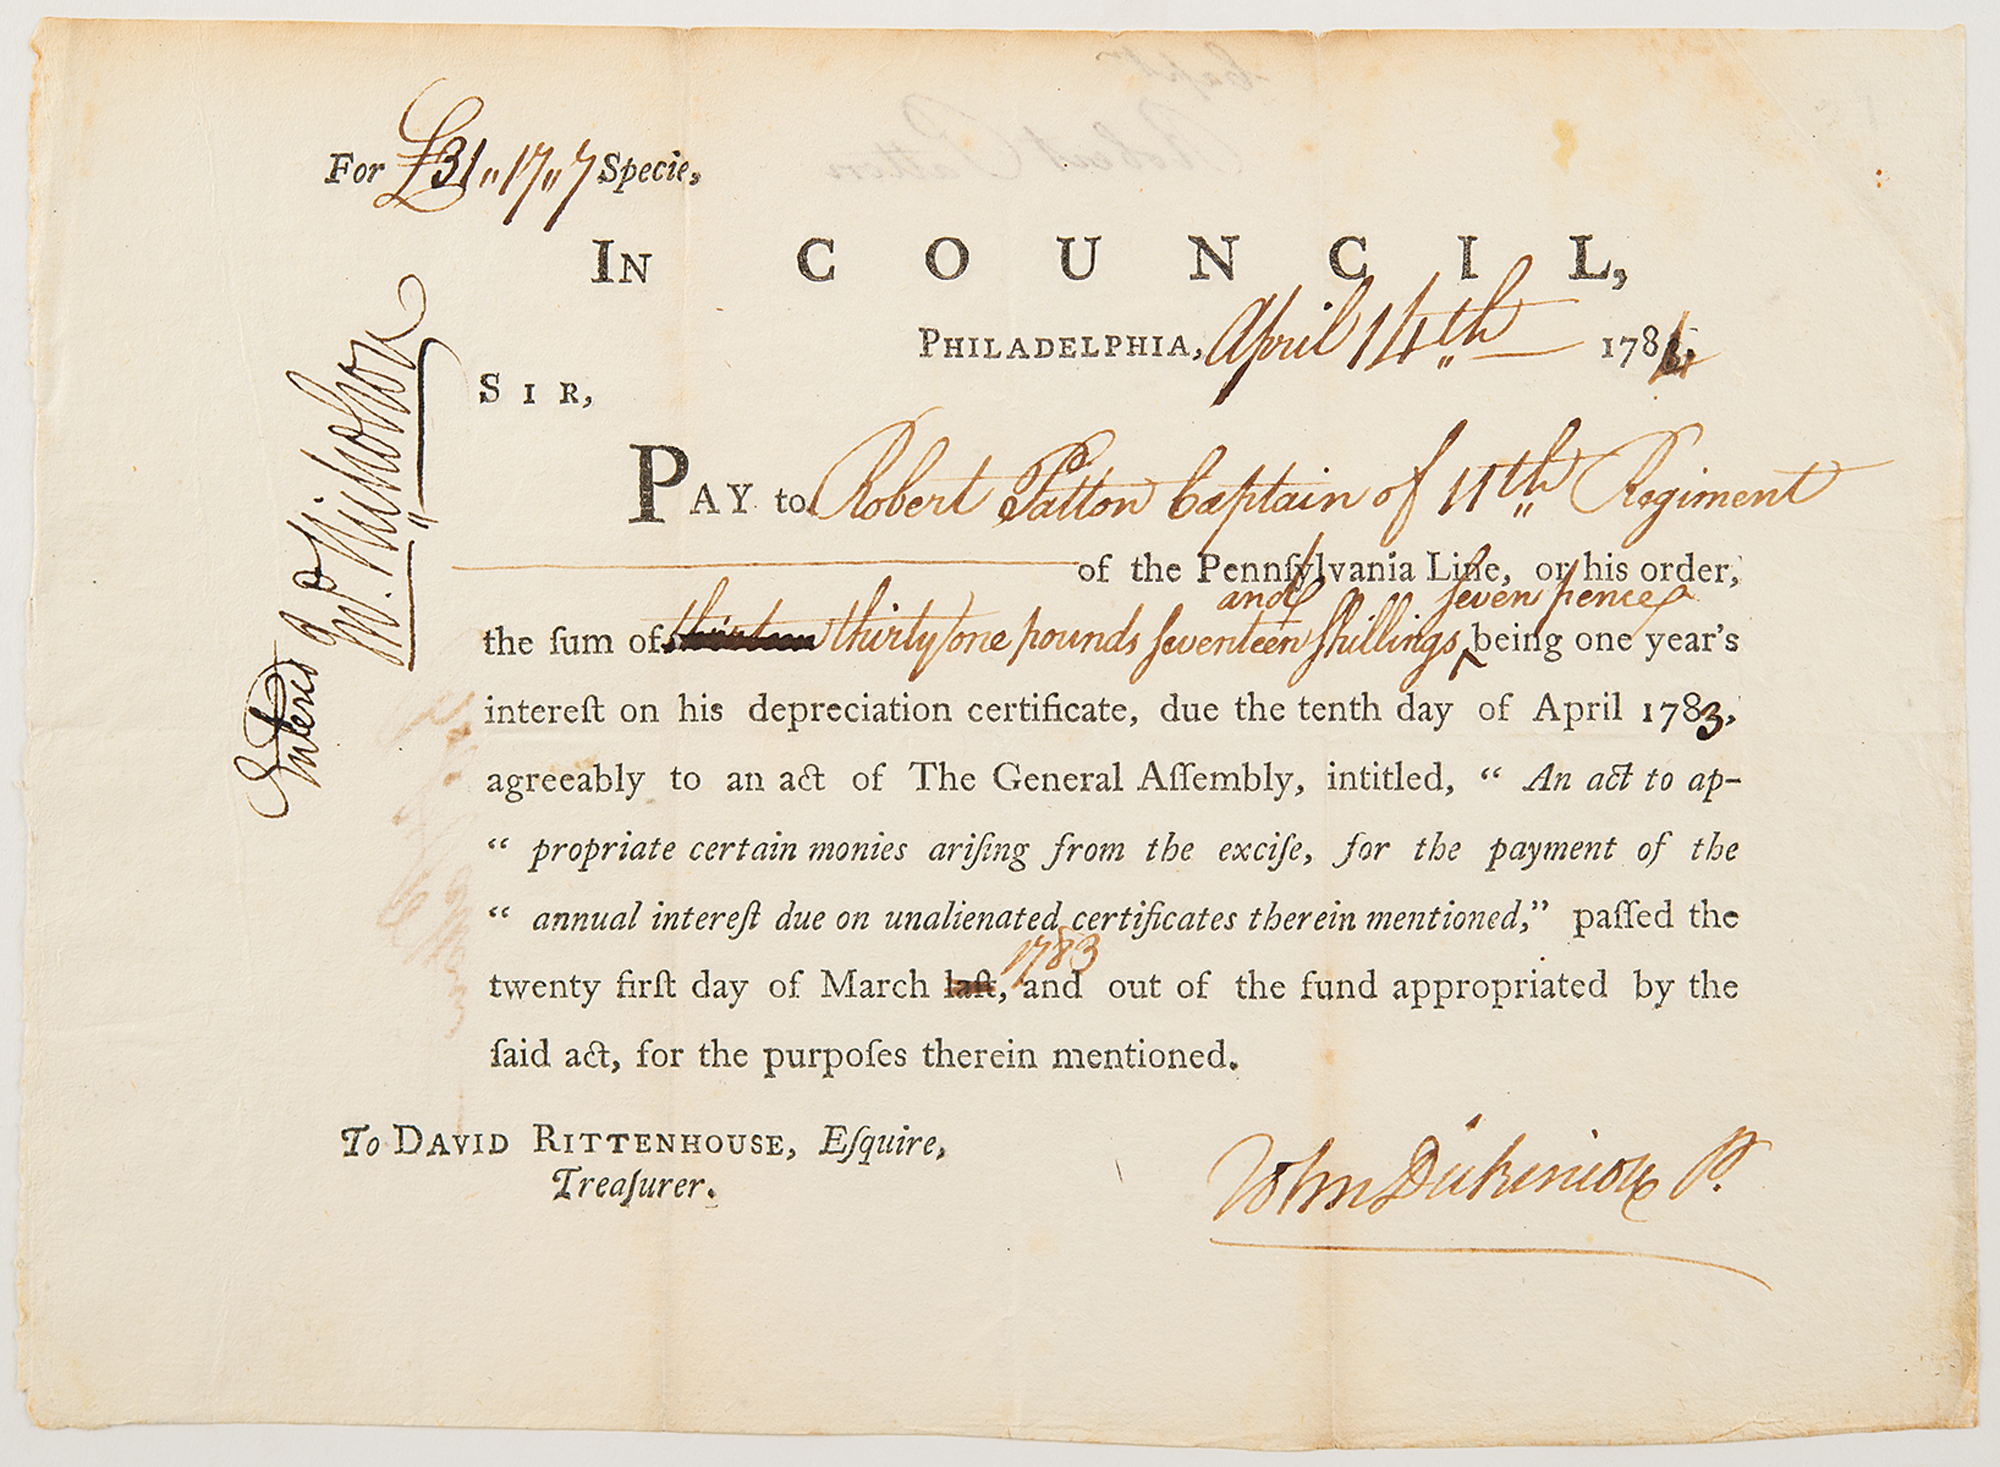 For £31„17„7 Specie,
IN COUNCIL,
PHILADELPHIA, April 14th 1784
SIR,
PAY to Robert Patton Captain of 11th Regiment
of the Pennſylvania Line, or his order,
and seven pence
the ſum of thirty one pounds seventeen shillings ‸ being one year’s
intereſt on his depreciation certificate, due the tenth day of April 1783,
agreeably to an act of The General Aſſembly, intitled, “ An act to ap-
“ propriate certain monies ariſing from the exciſe, for the payment of the
“ annual intereſt due on unalienated certificates therein mentioned,” paſſed the
1783
twenty firſt day of March laſt, and out of the fund appropriated by the
ſaid act, for the purpoſes therein mentioned.
To DAVID RITTENHOUSE, Eſquire,
Treaſurer.
John Dickinson P.
Entered
Jno. Nicholson
Capt
Robert Patton